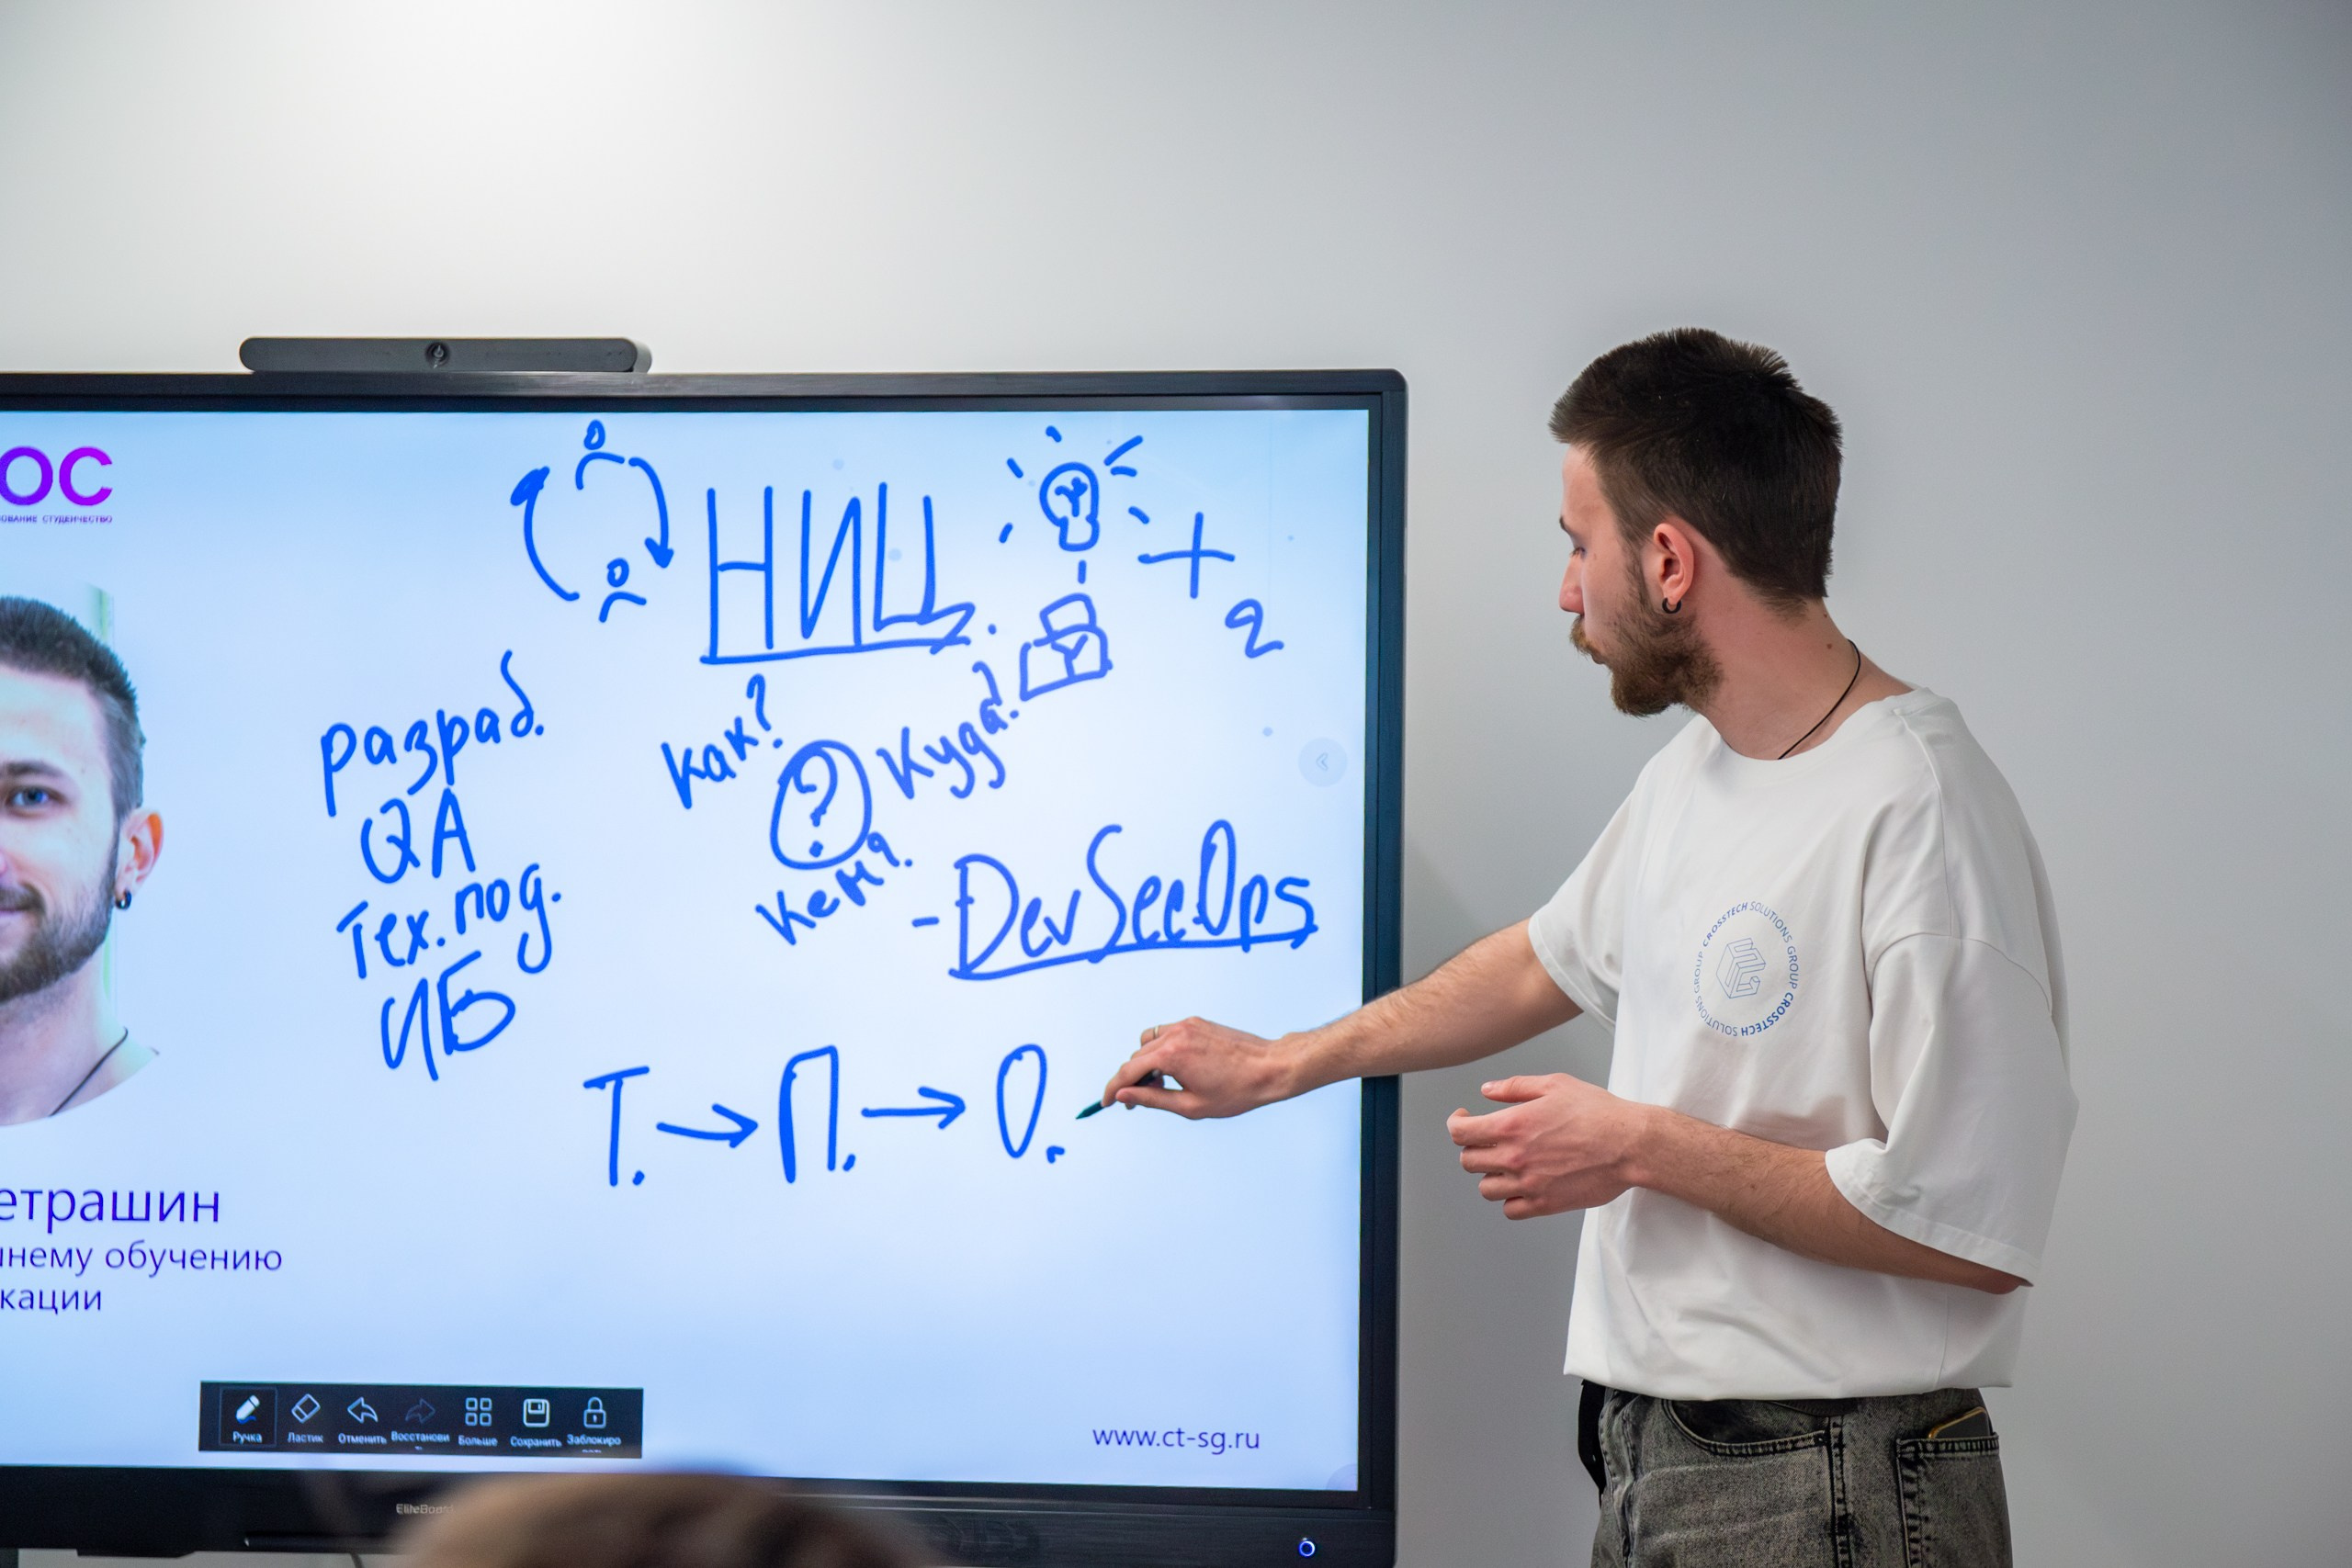 ОС
ОВАНИЕ СТУДЕНЧЕСТВО
НИЦ.
+
2
разраб.
QA
Тех.под.
ИБ
Как?
Куда?
?
Кем?
- DevSecOps
Т. → П. → О.
етрашин
нему обучению
кации
Ручка Ластик Отменить Восстанови Больше Сохранить Заблокиро
www.ct-sg.ru
EliteBoard
CROSSTECH SOLUTIONS GROUP CROSSTECH SOLUTIONS GROUP